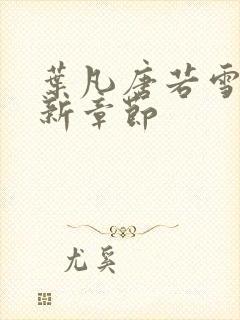 葉凡唐若雪
新章節
尤奚